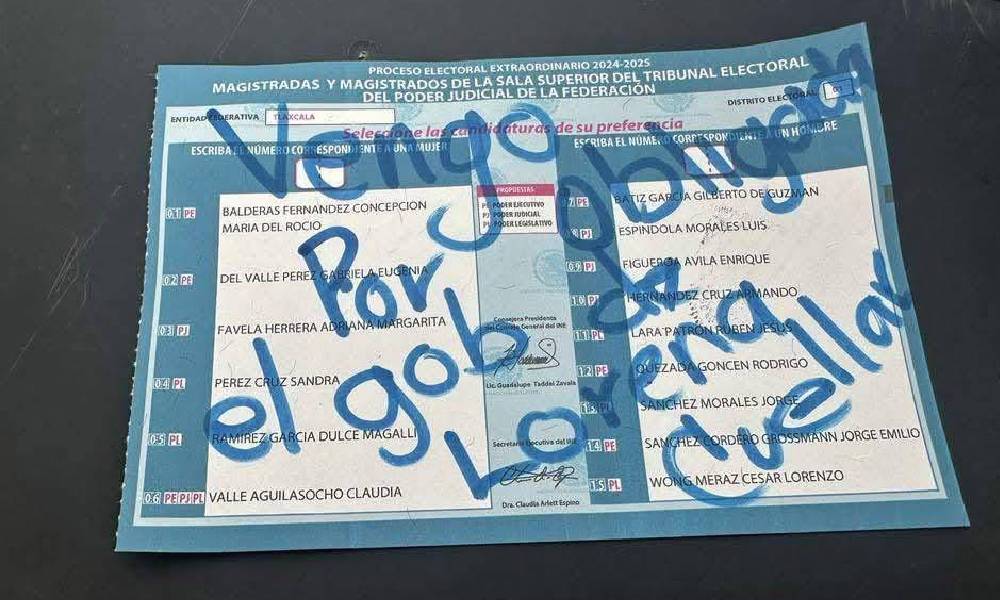 PROCESO ELECTORAL EXTRAORDINARIO 2024-2025
MAGISTRADAS Y MAGISTRADOS DE LA SALA SUPERIOR DEL TRIBUNAL ELECTORAL
DEL PODER JUDICIAL DE LA FEDERACIÓN
ENTIDAD FEDERATIVA TLAXCALA
DISTRITO ELECTORAL
Seleccione las candidaturas de su preferencia
ESCRIBA EL NÚMERO CORRESPONDIENTE A UNA MUJER
01 PE BALDERAS FERNANDEZ CONCEPCION
MARIA DEL ROCIO
02 PE DEL VALLE PEREZ GABRIELA EUGENIA
03 PJ FAVELA HERRERA ADRIANA MARGARITA
04 PL PEREZ CRUZ SANDRA
05 PL RAMIREZ GARCIA DULCE MAGALLI
06 PE PJ PL VALLE AGUILASOCHO CLAUDIA
PROPUESTAS
PE PODER EJECUTIVO
PJ PODER JUDICIAL
PL PODER LEGISLATIVO
Consejera Presidenta
del Consejo General del INE
Lic. Guadalupe Taddei Zavala
Secretaria Ejecutiva del INE
Dra. Claudia Arlett Espino
ESCRIBA EL NÚMERO CORRESPONDIENTE A UN HOMBRE
PE BATIZ GARCIA GILBERTO DE GUZMAN
PJ ESPINDOLA MORALES LUIS
09 PJ FIGUEROA AVILA ENRIQUE
10 PJ HERNANDEZ CRUZ ARMANDO
11 PL LARA PATRON RUBEN JESUS
12 PE QUEZADA GONCEN RODRIGO
13 PL SANCHEZ MORALES JORGE
14 PE SANCHEZ CORDERO GROSSMANN JORGE EMILIO
15 PL WONG MERAZ CESAR LORENZO
Vengo obligada
Por
el gob de
Lorena
Cuellar